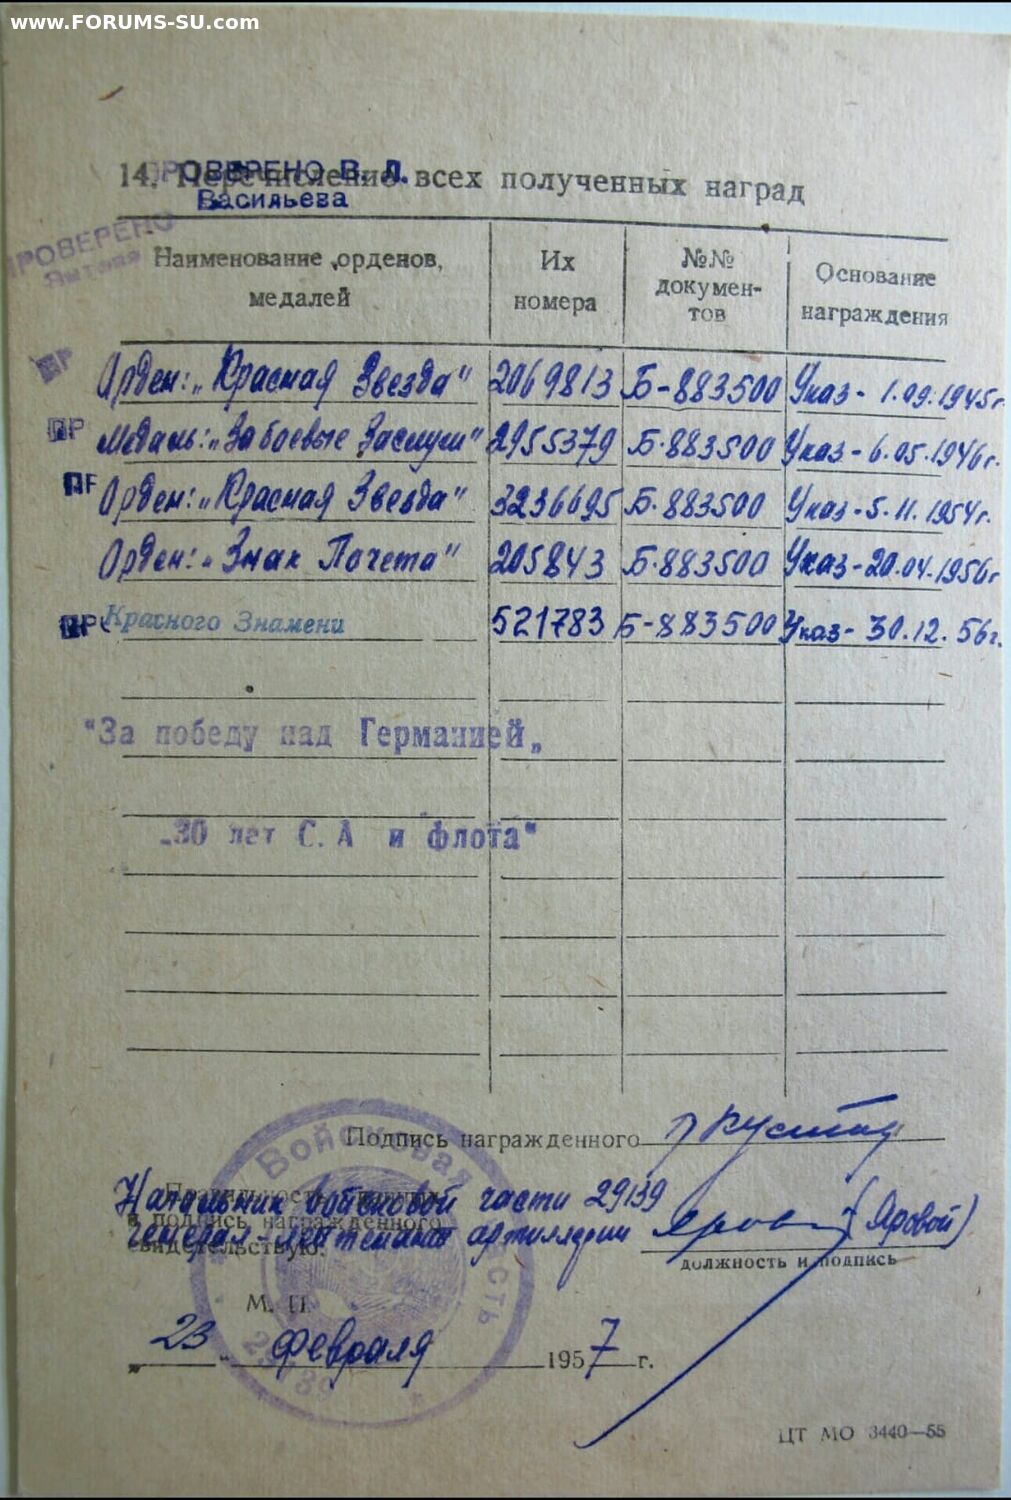 www.FORUMS-SU.com
14. Перечисление всех полученных наград
ПРОВЕРЕНО В. Л.
Васильева
ПРОВЕРЕНО
Наименование орденов, медалей
Их номера
№№ докумен-тов
Основание награждения
ПР
Орден: „Красная Звезда" 2069813 Б-883500 Указ - 1.09.1945г.
ПР Медаль: „За боевые Заслуги" 2955379 Б.883500 Указ - 6.05.1946г.
ПР Орден: „Красная Звезда" 3236695 Б.883500 Указ - 5.11.1954г.
Орден: „Знак Почета" 205843 Б.883500 Указ - 20.04.1956г
ПРО Красного Знамени 521783 Б-883500 Указ - 30.12.56г.
"За победу над Германией„
„30 лет С. А и флота"
Подпись награжденного
Правильность
Начальник войсковой части 29139
и подпись награжденного
генерал-лейтенант артиллерии (Яровой)
свидетельствую:
должность и подпись
М. П.
23 февраля 1957 г.
Войсковая часть
29139
ЦТ МО 3440—55